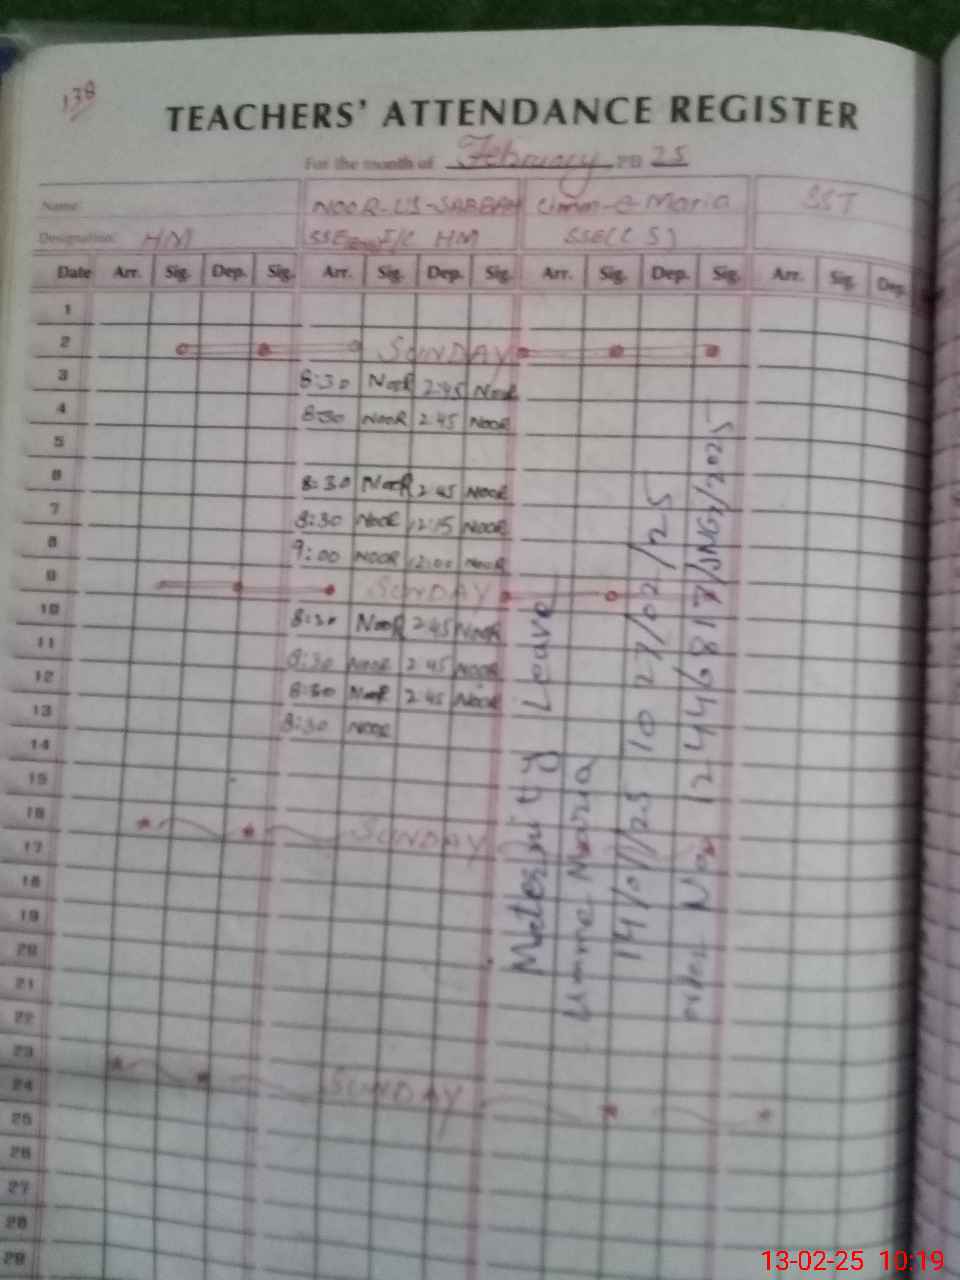 138
TEACHERS' ATTENDANCE REGISTER
For the month of February 25
Name: NOOR-US-SABBAH Umm-e-Maria SST
Designation: HM SSE I/C HM SSE(CS)
Date Arr. Sig. Dep. Sig. Arr. Sig. Dep. Sig. Arr. Sig. Dep. Sig. Arr. Sig. Dep.
1
2 SUNDAY
3 8:30 NOOR 2:45 NOOR
4 8:30 NOOR 2:45 NOOR
5
6 8:30 NOOR 2:45 NOOR
7 8:30 NOOR 12:15 NOOR
8 9:00 NOOR 12:00 NOOR
9 SUNDAY
10 8:30 NOOR 2:45 NOOR
11 8:30 NOOR 2:45 NOOR
12 8:30 NOOR 2:45 NOOR
13 8:30 NOOR
14
15
16 SUNDAY
17
18
19
20
21
22
23 SUNDAY
24
25
26
27
28
29
Maternity Leave
Umme Maria
14/01/25 to 27/02/25
order No.
13-02-25 10:19